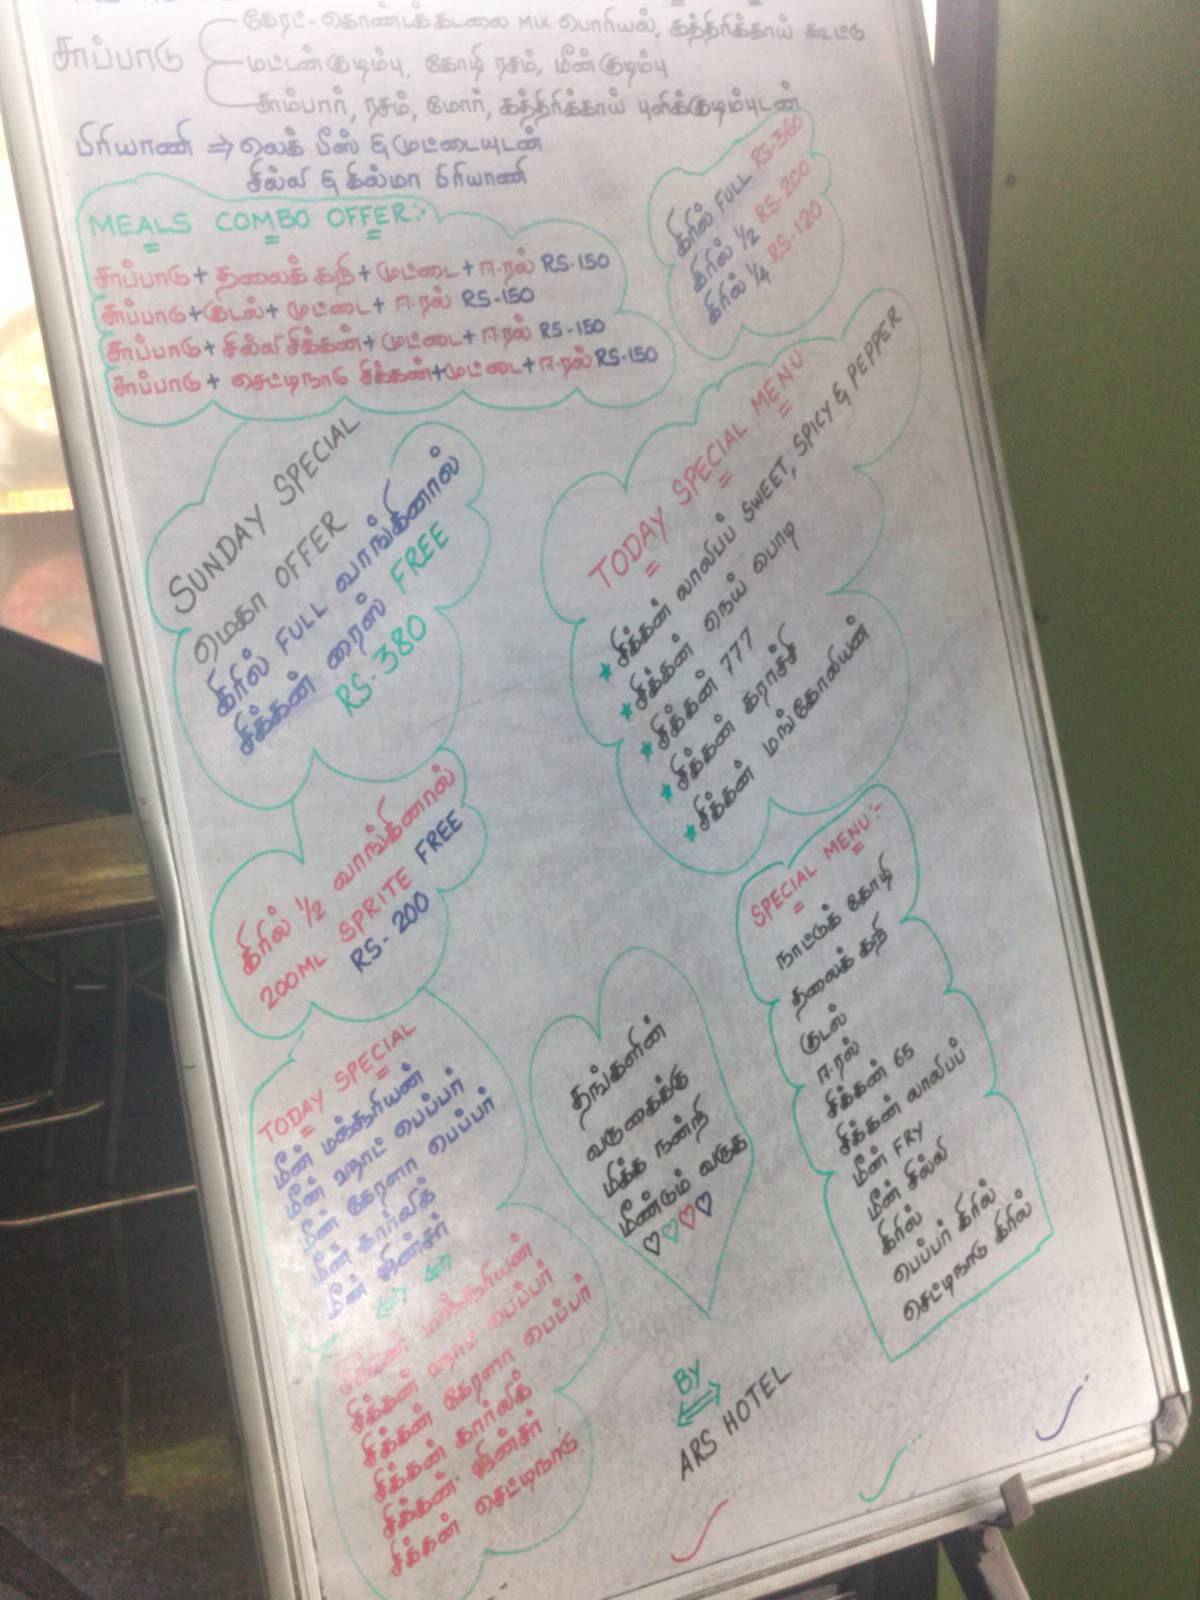 கேரட்-கொண்டக்கடலை MIX பொரியல், கத்திரிக்காய் கூட்டு
சாப்பாடு
மட்டன்குடிம்பு, கோழி ரசம், மீன்குடிம்பு
சாம்பார், ரசம், மோர், கத்திரிக்காய் புளிக்குடிம்புடன்
பிரியாணி ⇒ லெக் பீஸ் & முட்டையுடன்
சில்லி & கல்மா பிரியாணி
MEALS COMBO OFFER:-
சாப்பாடு+ தலைக்கறி+ முட்டை+ ஈரல் RS-150
சாப்பாடு+குடல்+ முட்டை+ ஈரல் RS-150
சாப்பாடு+ சில்லி சிக்கன்+முட்டை+ ஈரல் RS-150
சாப்பாடு+ செட்டிநாடு சிக்கன்+முட்டை+ஈரல் RS-150
கிரில் FULL RS-360
கிரில் 1/2 RS-200
கிரில் 1/4 RS-120
SUNDAY SPECIAL
மெகா OFFER
கிரில் FULL வாங்கினால்
சிக்கன் ரைஸ் FREE
RS-380
TODAY SPECIAL MENU
★ சிக்கன் லாலிபப் SWEET, SPICY & PEPPER
★ சிக்கன் நெய் பொடி
★ சிக்கன் 777
★ சிக்கன் கராச்சி
★ சிக்கன் மங்கோலியன்
கிரில் 1/2 வாங்கினால்
200ML SPRITE FREE
RS-200
SPECIAL MENU:-
நாட்டுக் கோழி
தலைக் கறி
குடல்
ஈரல்
சிக்கன் 65
சிக்கன் லாலிபப்
மீன் FRY
மீன் சில்லி
கிரில்
பெப்பர் கிரில்
செட்டிநாடு கிரில்
TODAY SPECIAL
மீன் மஞ்சூரியன்
மீன் ஹாட் பெப்பர்
மீன் கேரளா பெப்பர்
மீன் கார்லிக்
மீன் ஜின்சர்
சிக்கன் மஞ்சூரியன்
சிக்கன் ஹாட் பெப்பர்
சிக்கன் கேரளா பெப்பர்
சிக்கன் கார்லிக்
சிக்கன் ஜின்சர்
சிக்கன் செட்டிநாடு
தங்களின்
வருகைக்கு
மிக்க நன்றி
மீண்டும் வருக
BY
ARS HOTEL